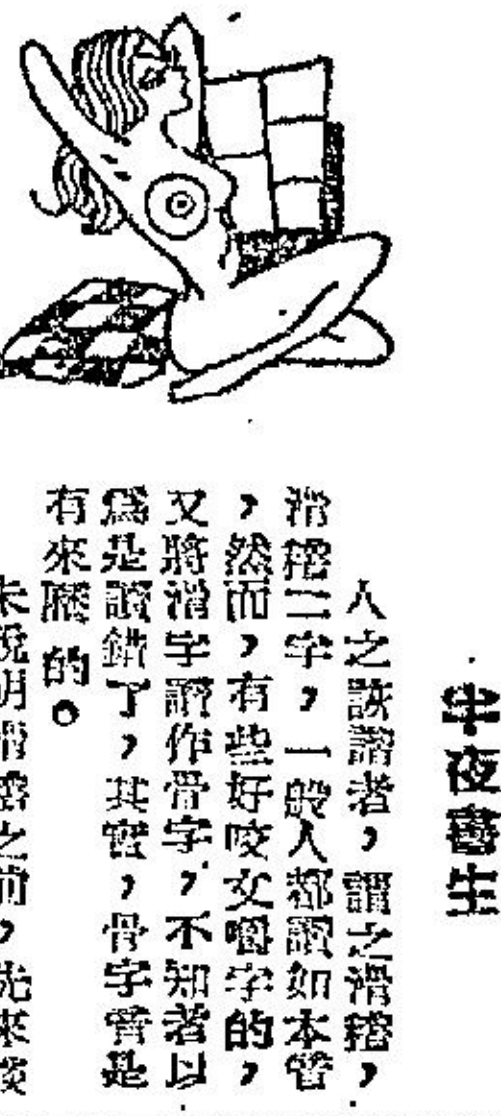 半夜書生
人之詼諧者，謂之滑稽，
滑稽二字，一般人都讀如本音
，然而，有些好咬文嚼字的，
又將滑字讀作骨字，不知者以
爲是讀錯了，其實，骨字音是
有來歷的。
未說明滑稽之前，先來談